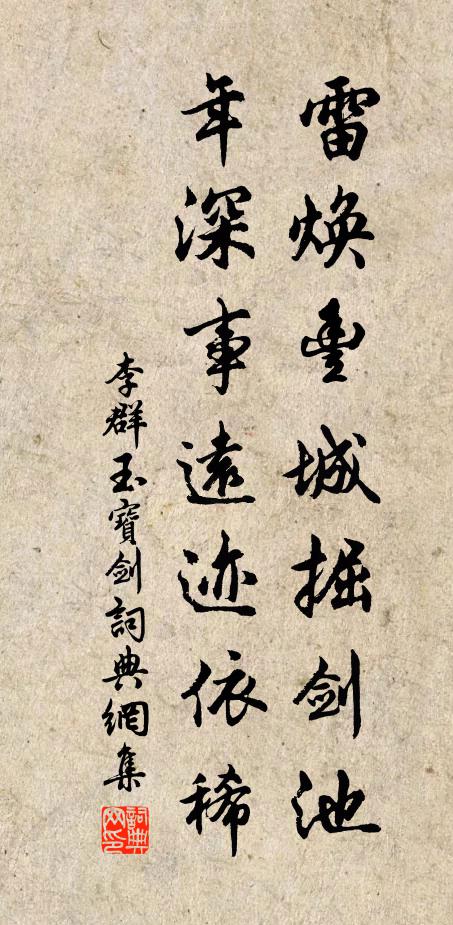 雷焕豊城掘剑池
年深事遠迹依稀
李群玉寶劍詞典網集
詞典网印